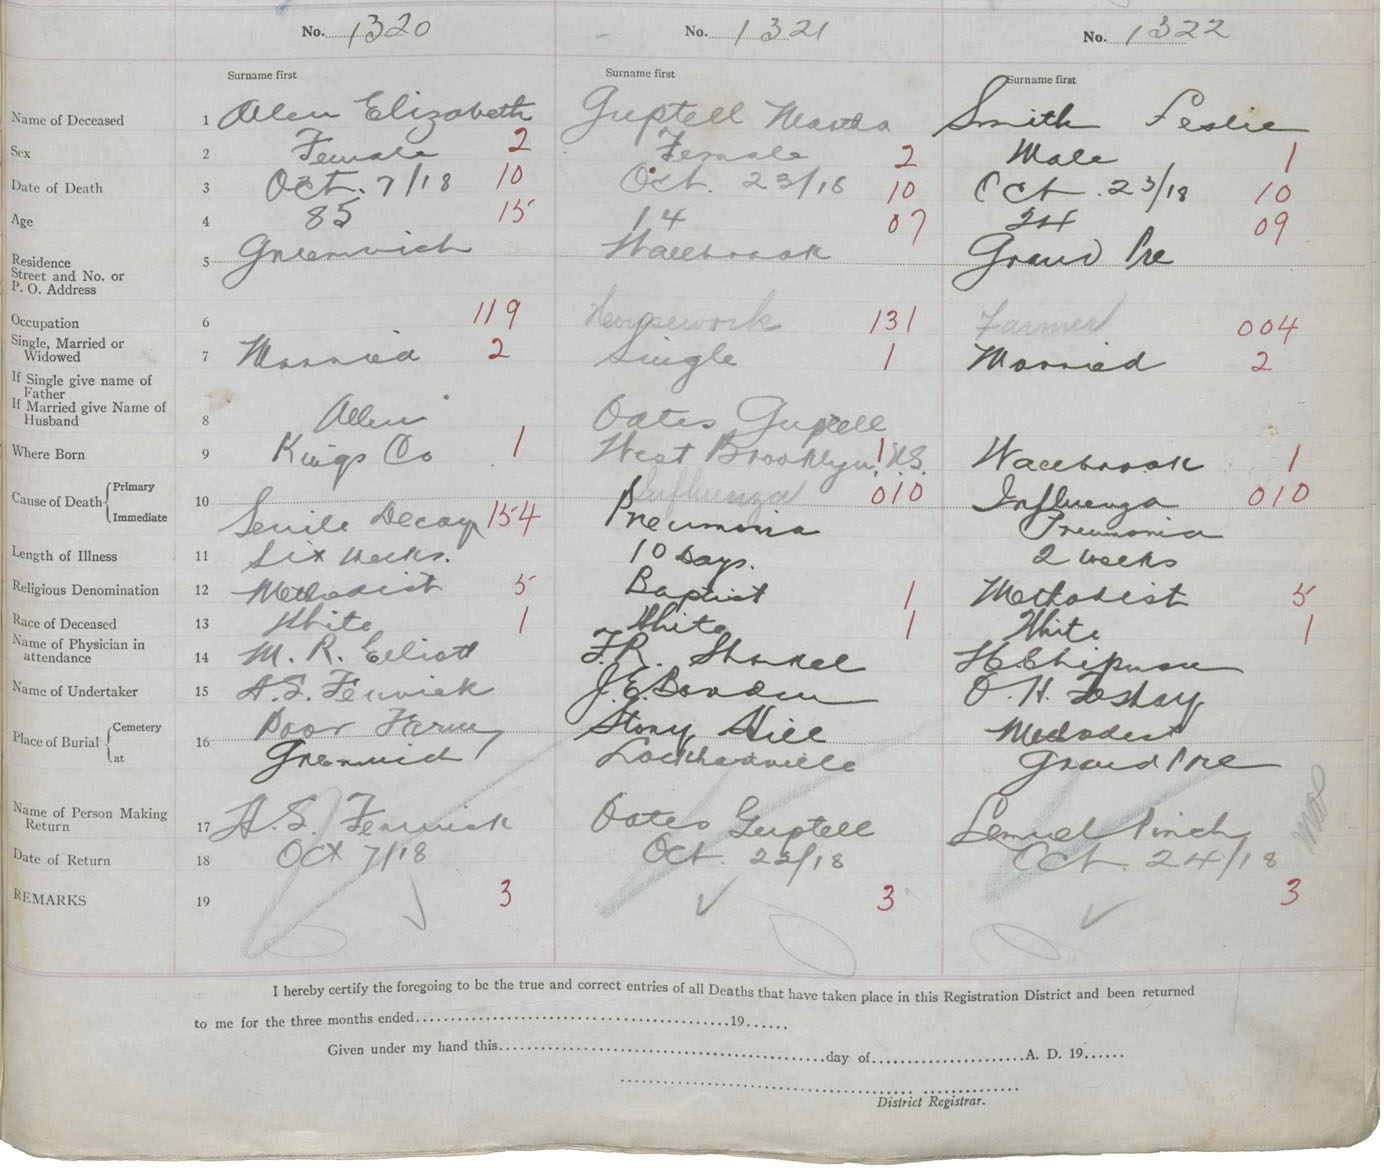 No. 1320 No. 1321 No. 1322
Surname first Surname first Surname first
Name of Deceased 1 Allen Elizabeth Guptell Martha Smith Leslie
Sex 2 Female 2 Female 2 Male 1
Date of Death 3 Oct. 7/18 10 Oct. 23/18 10 Oct. 23/18 10
Age 4 85 15 14 07 24 09
Residence
Street and No. or
P. O. Address 5 Greenwich Wallbrook Grand Pre
Occupation 6 119 Housework 131 Farmer 004
Single, Married or
Widowed 7 Married 2 Single 1 Married 2
If Single give name of
Father
If Married give Name of
Husband 8 Allen Oates Guptell
Where Born 9 Kings Co 1 West Brooklyn, N.S. 1 Wallbrook 1
Cause of Death { Primary 10 Influenza 010 Influenza 010
Immediate Senile Decay 154 Pneumonia Pneumonia
Length of Illness 11 Six weeks. 10 Days. 2 weeks
Religious Denomination 12 Methodist 5 Baptist 1 Methodist 5
Race of Deceased 13 White 1 White 1 White 1
Name of Physician in
attendance 14 M. R. Elliott F. R. H. Chipman
Name of Undertaker 15 A. S. Fenwick J. E. Borden O. H. Foshay
Place of Burial { Cemetery 16 Poor Farm Stony Hill Methodist
at Greenwich Lockhartville Grand Pre
Name of Person Making
Return 17 A. S. Fenwick Oates Guptell Lemuel Pinch
Date of Return 18 Oct 7/18 Oct. 22/18 Oct. 24/18
REMARKS 19 3 3 3
I hereby certify the foregoing to be the true and correct entries of all Deaths that have taken place in this Registration District and been returned
to me for the three months ended 19
Given under my hand this day of A. D. 19
District Registrar.